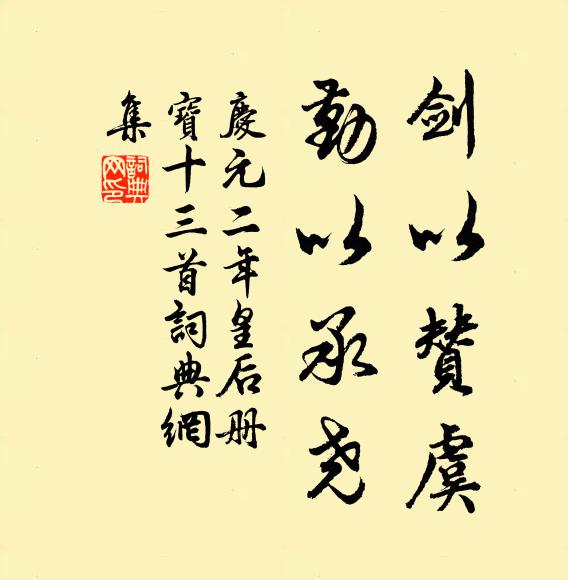 劍以贊虞
勤以承尧
慶元二年皇后册
寶十三首詞典網
集
詞典網印